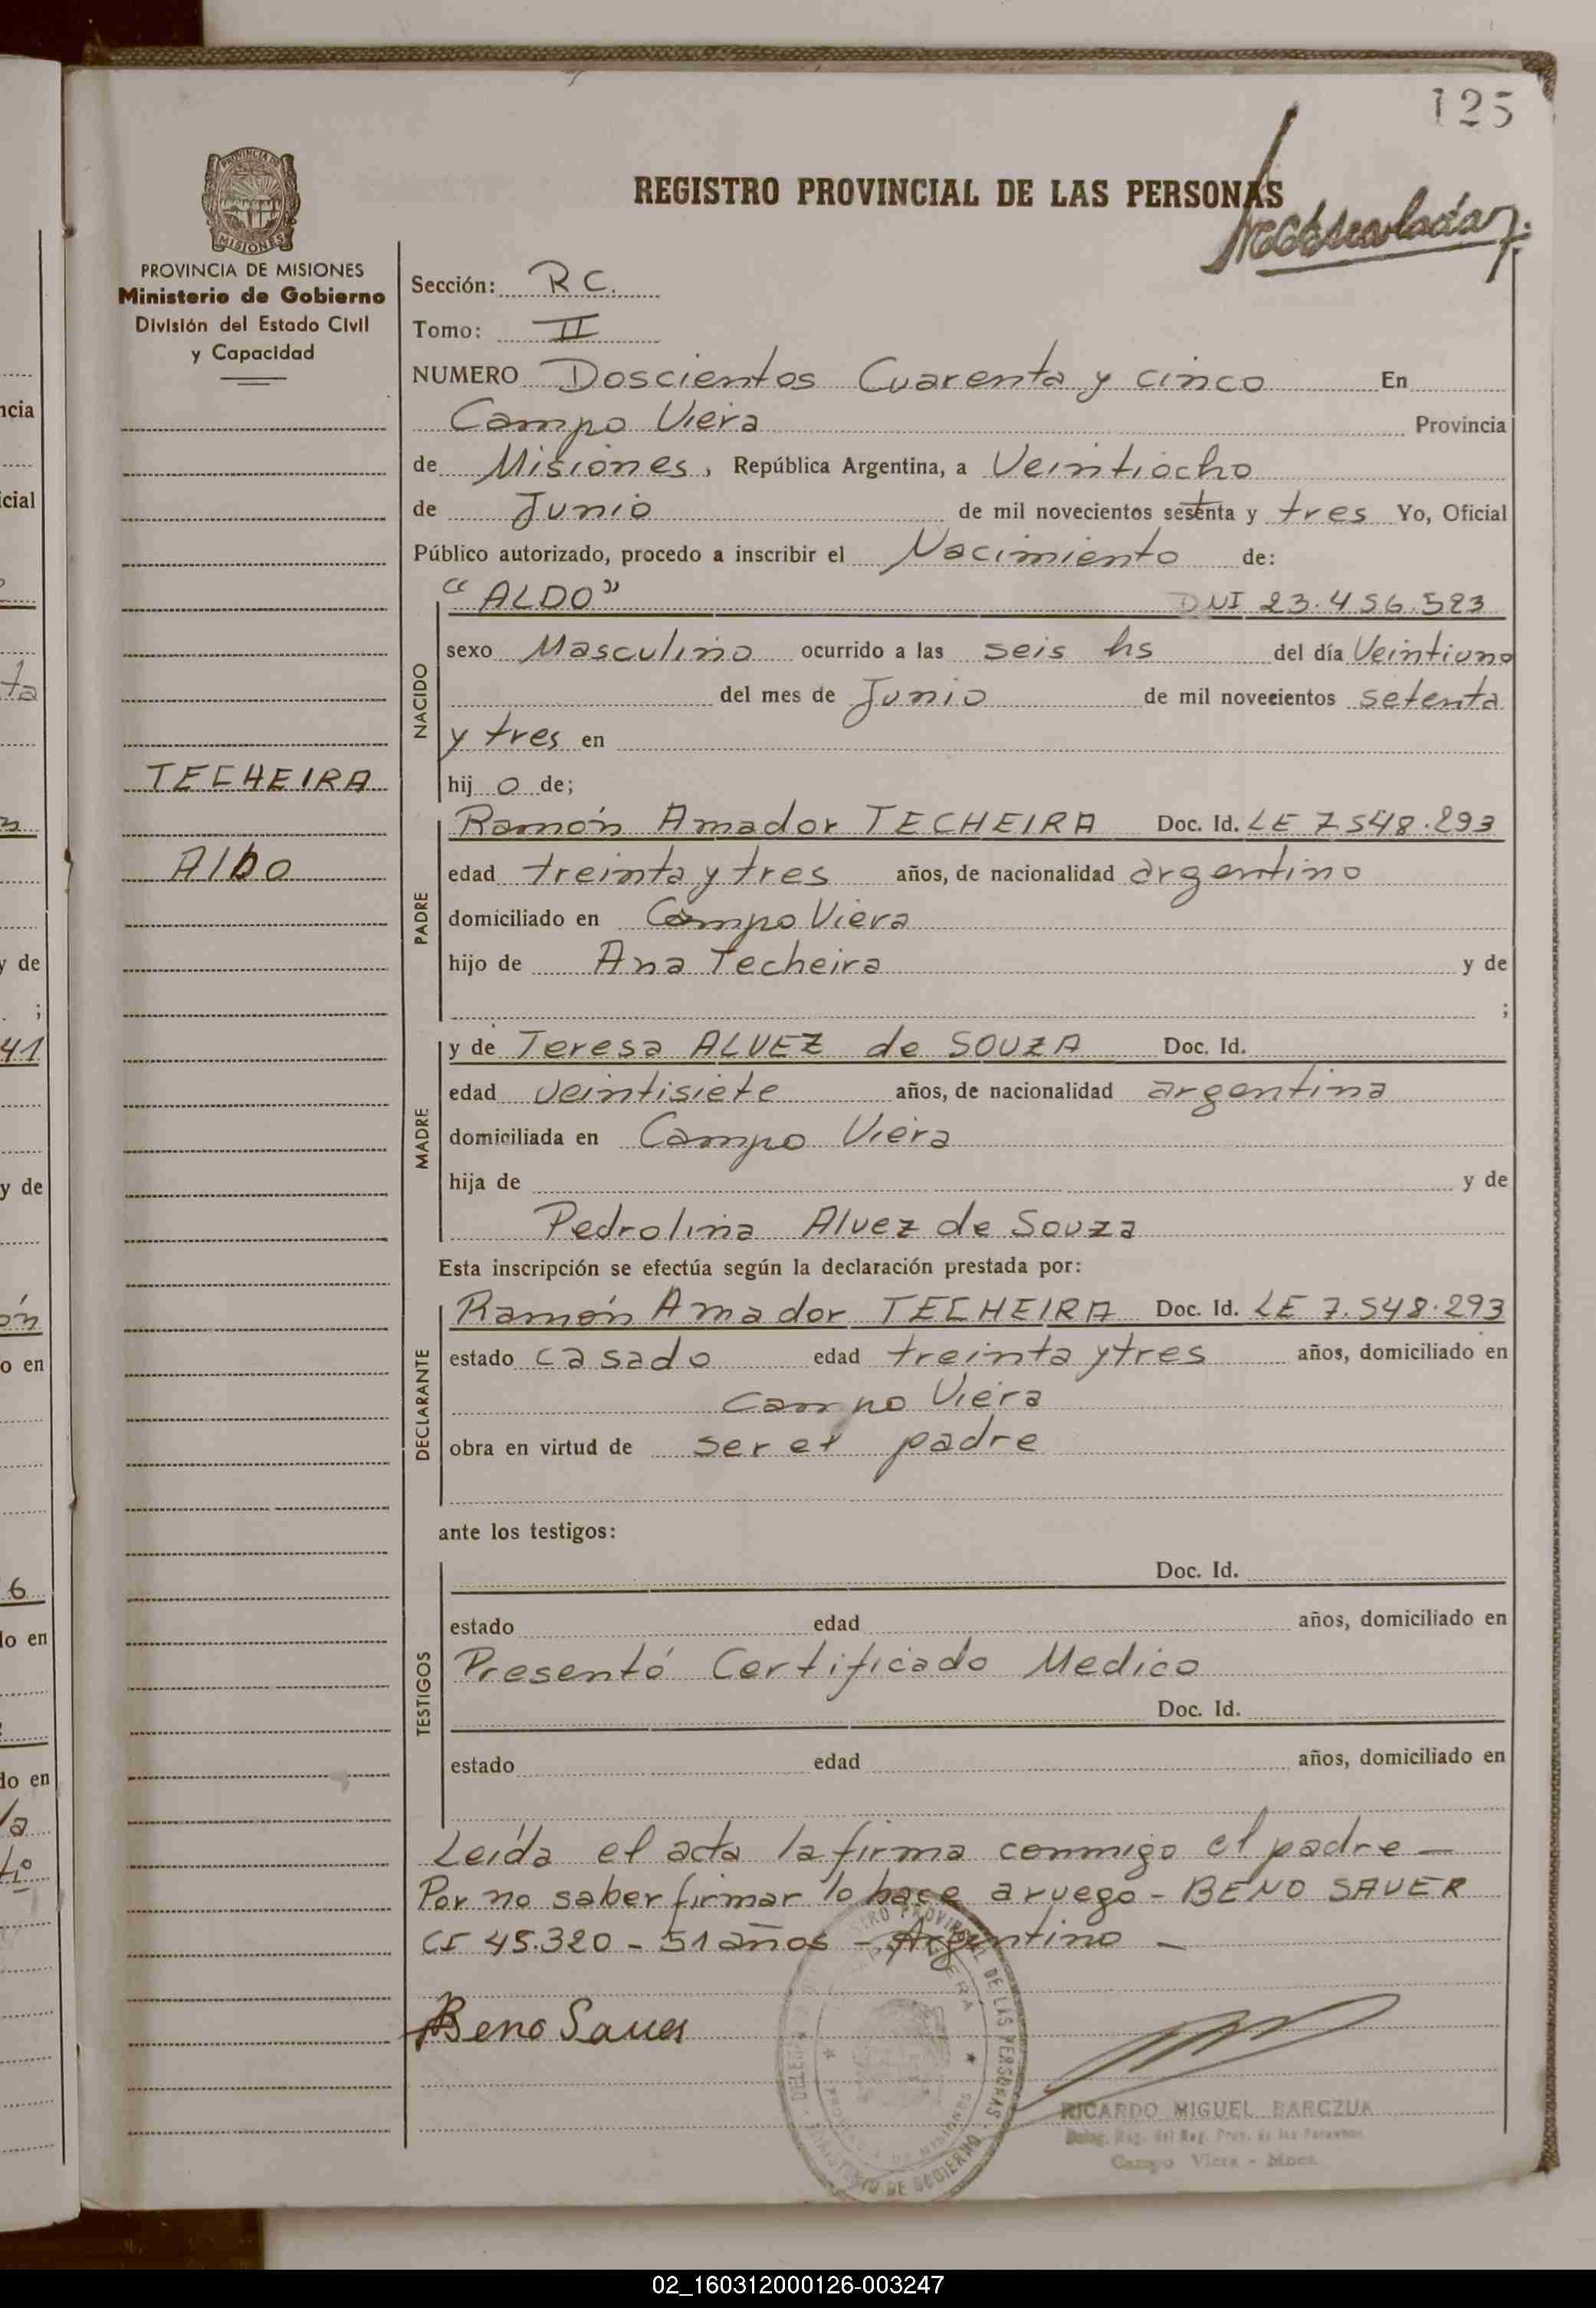 125
REGISTRO PROVINCIAL DE LAS PERSONAS
PROVINCIA DE
MISIONES
PROVINCIA DE MISIONES
Ministerio de Gobierno
División del Estado Civil
y Capacidad
TECHEIRA
Aldo
Sección: R C.
Tomo: II
NUMERO Doscientos Cuarenta y cinco En
Campo Viera Provincia
de Misiones, República Argentina, a Veintiocho
de Junio de mil novecientos setenta y tres Yo, Oficial
Público autorizado, procedo a inscribir el Nacimiento de:
NACIDO
"ALDO" DNI 23.456.523
sexo Masculino ocurrido a las seis hs del día Veintiuno
del mes de Junio de mil novecientos setenta
y tres en
hij o de;
PADRE
Ramón Amador TECHEIRA Doc. Id. LE 7.548.293
edad treinta y tres años, de nacionalidad argentino
domiciliado en Campo Viera
hijo de Ana Techeira y de
;
MADRE
y de Teresa ALVEZ de SOUZA Doc. Id.
edad veintisiete años, de nacionalidad argentina
domiciliada en Campo Viera
hija de y de
Pedrolina Alvez de Souza
Esta inscripción se efectúa según la declaración prestada por:
DECLARANTE
Ramón Amador TECHEIRA Doc. Id. LE 7.548.293
estado casado edad treinta y tres años, domiciliado en
Campo Viera
obra en virtud de ser el padre
ante los testigos:
TESTIGOS
Doc. Id.
estado edad años, domiciliado en
Presentó Certificado Medico
Doc. Id.
estado edad años, domiciliado en
Leída el acta la firma conmigo el padre —
Por no saber firmar lo hace a ruego - BENO SAUER
CI 45.320 - 51 años - Argentino —
Beno Sauer
RICARDO MIGUEL BARCZUK
Deleg. Reg. del Reg. Prov. de las Personas
Campo Viera - Mnes.
02_160312000126-003247